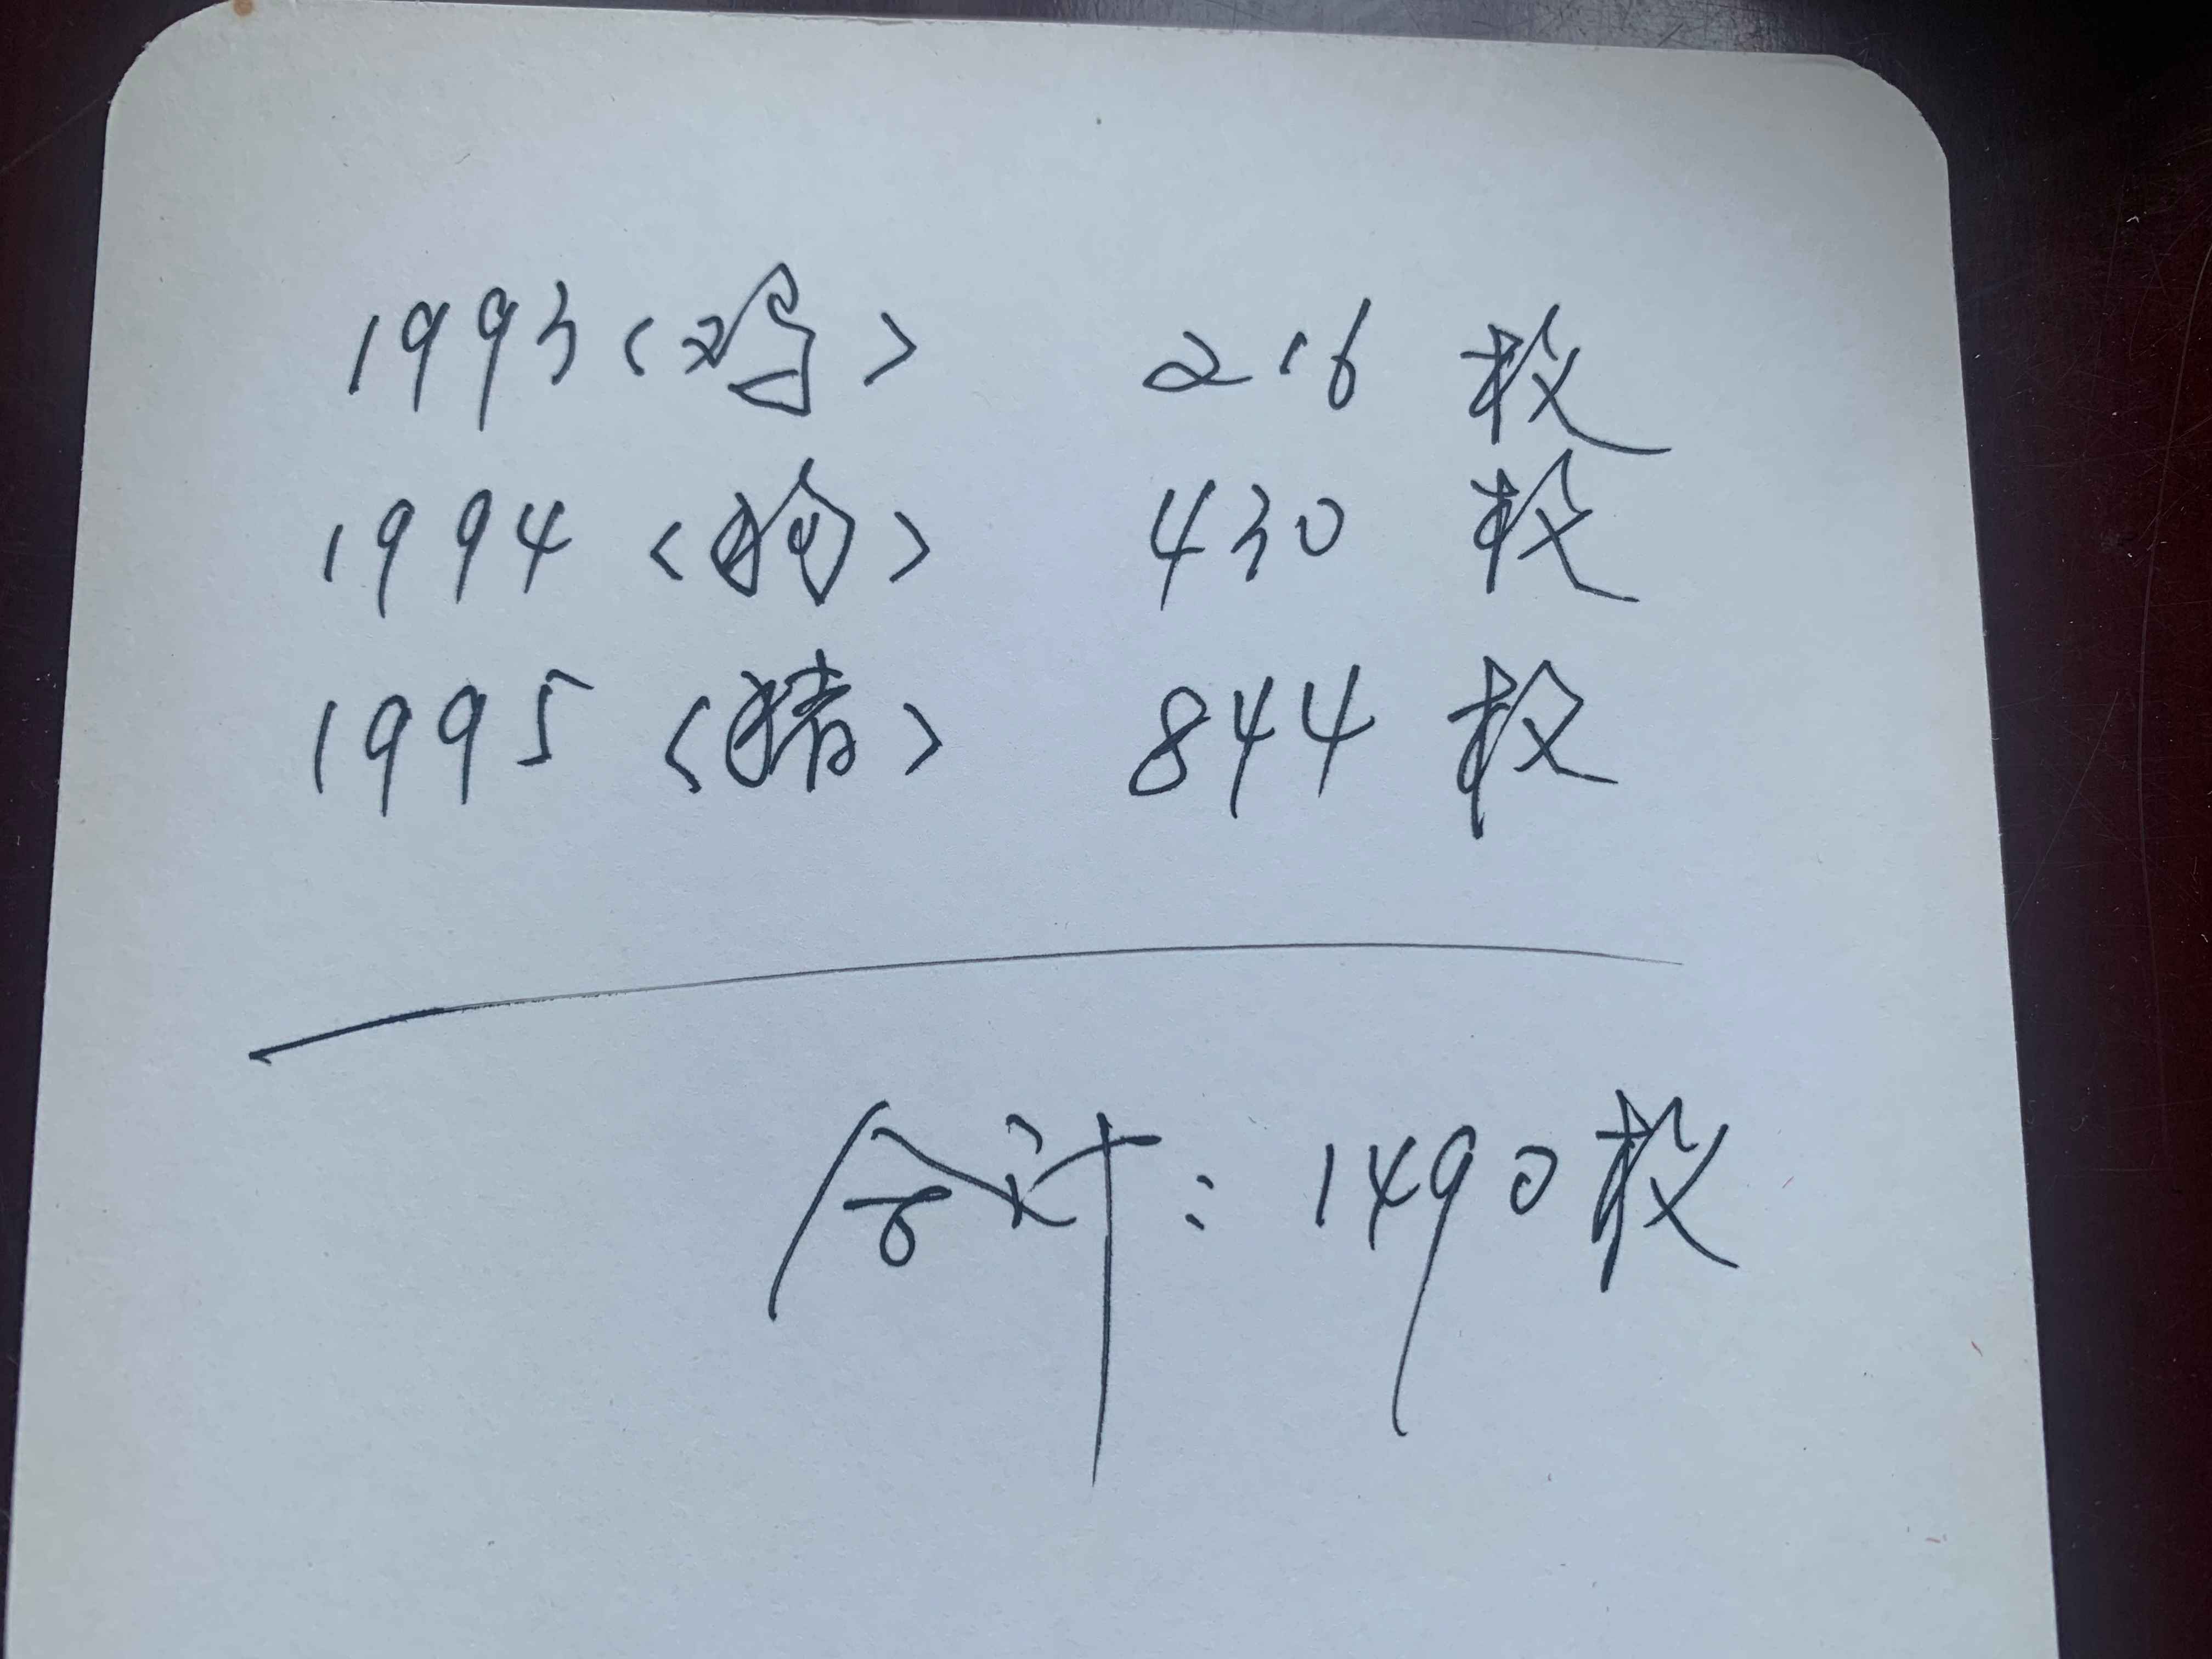 1993〈鸡〉 216 枚
1994〈狗〉 430 枚
1995〈猪〉 844 枚
合计：1490枚